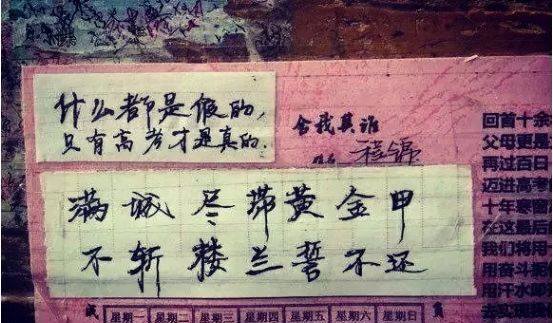 什么都是假的，
只有高考才是真的.
舍我其谁
程锦
满城尽带黄金甲
不斩楼兰誓不还
回首十余
父母更是
再过百日
迈进高考
十年寒窗
在这最后
我们将用
用奋斗驱
用汗水即
去实现我
成
星期一 星期二 星期三 星期四 星期五 星期六 星期日